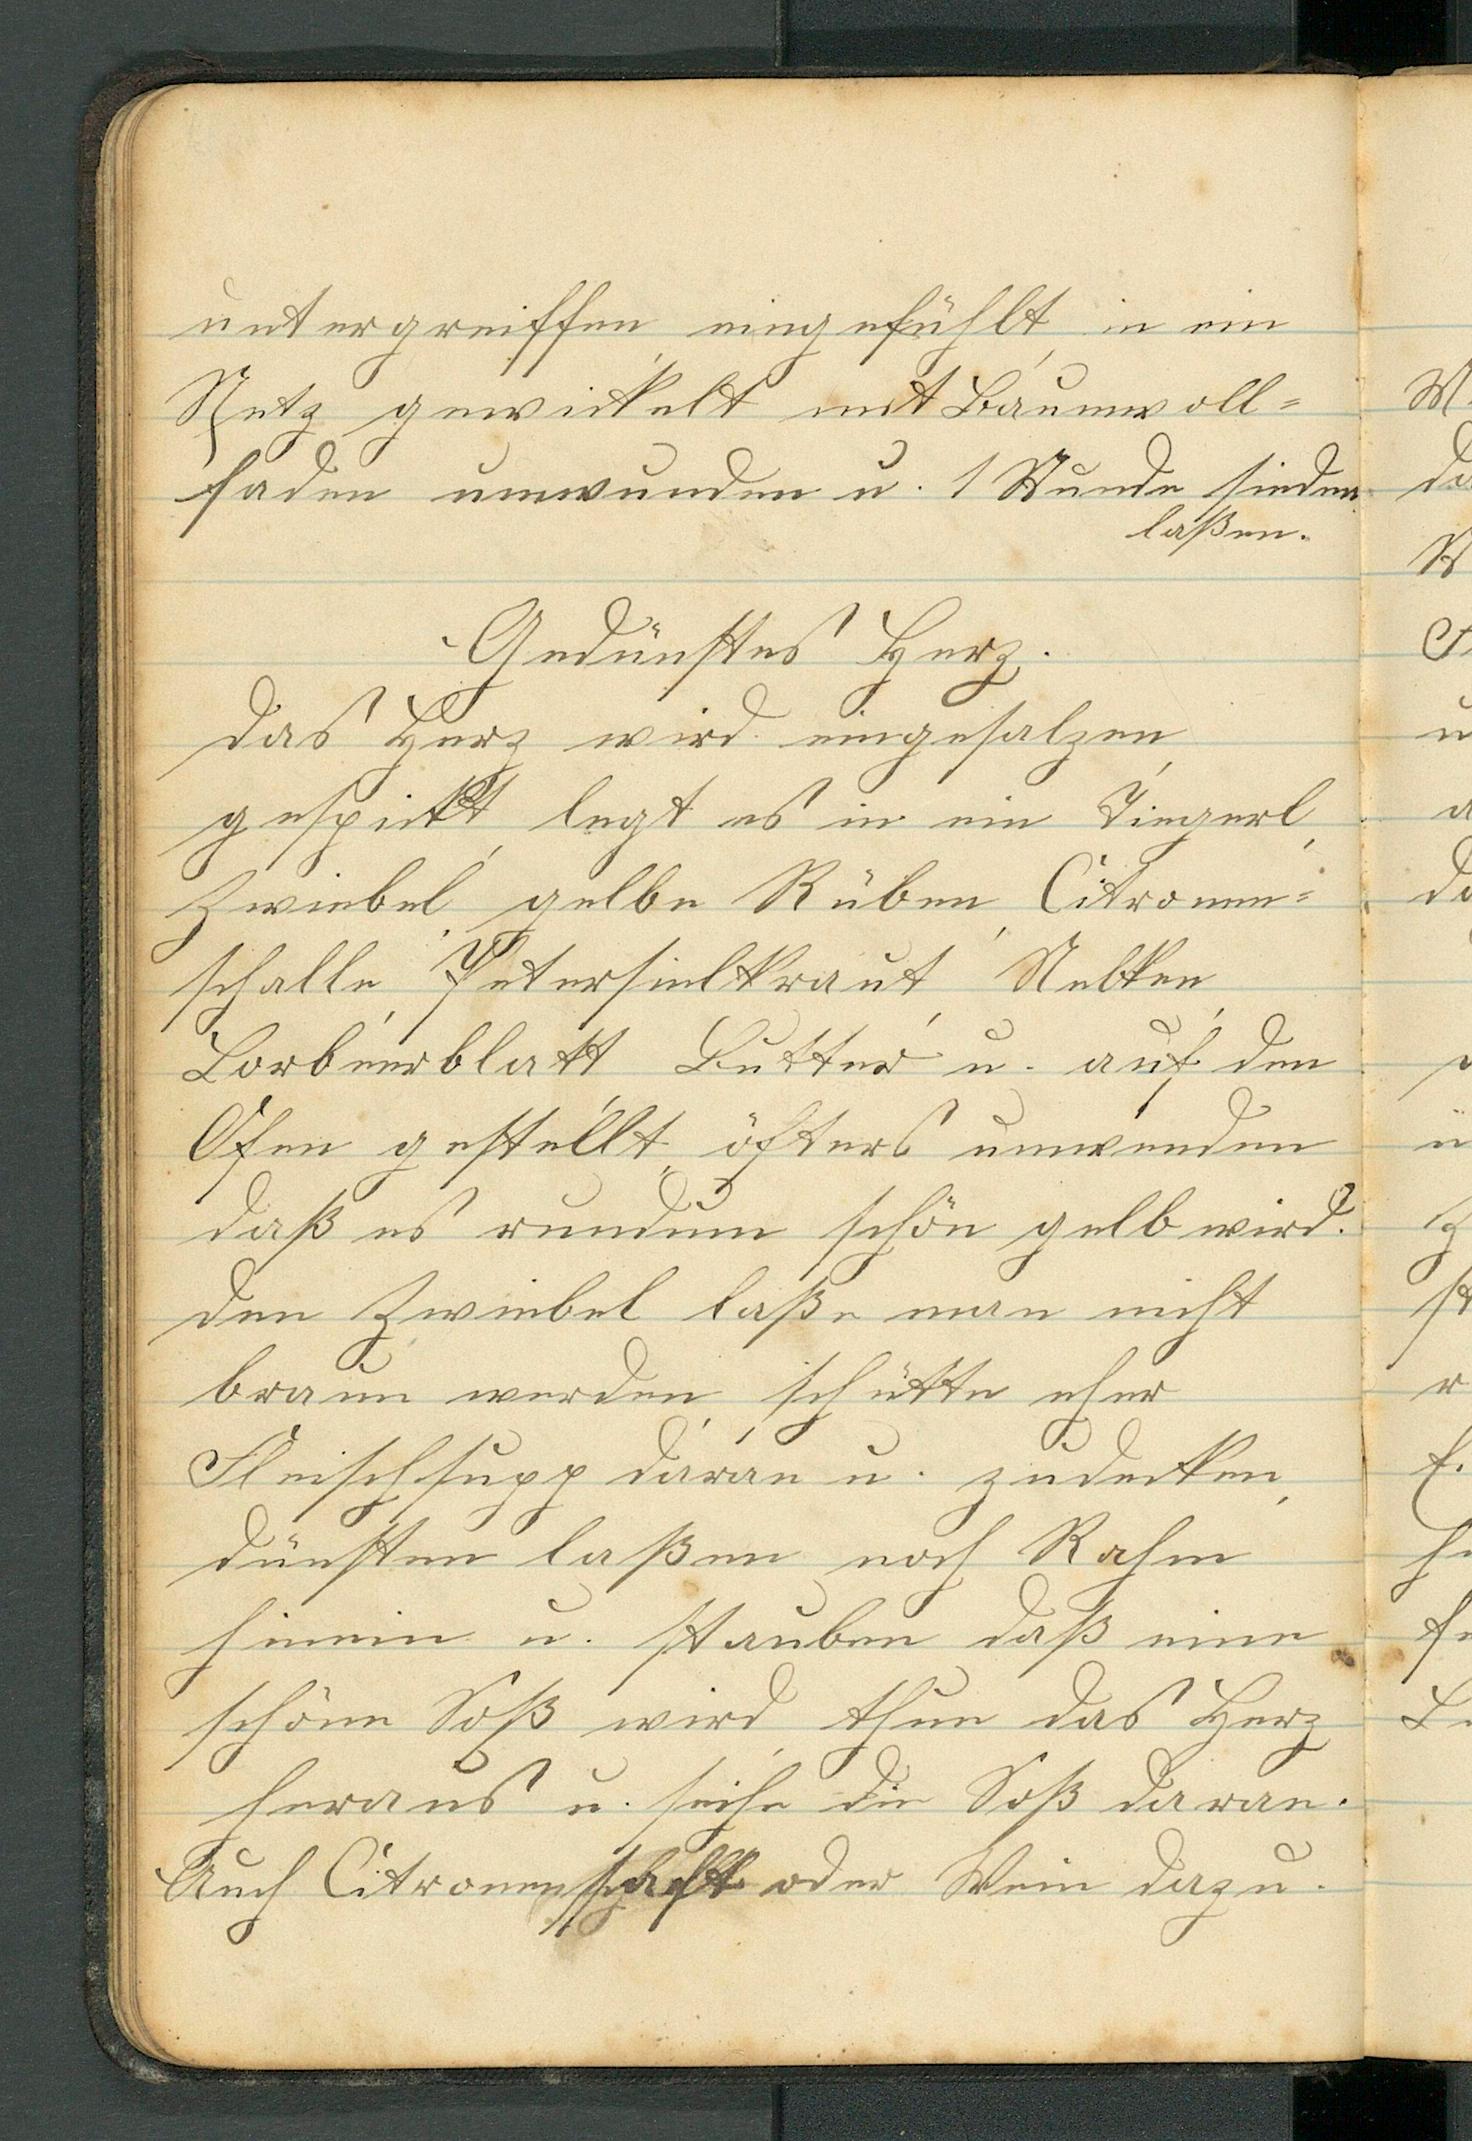 untergreiffen eingefühlt, in ein
Netz gewickelt mit Baumwoll=
faden umwunden u. 1 Stunde sieden
laßen.
Gedünstes Herz.
das Herz wird eingesalzen,
gespickt, legt es in ein Tiegerl,
Zwiebel, gelbe Rüben, Citronen=
schalle, Petersielkraut, Nelken,
Lorbeerblatt Butter u. auf den
Ofen gestellt, öfters umwenden
daß es rundum schön gelb wird.
den Zwiebel laße man nicht
braun werden, schütte eher
Fleischsupp daran u. zudecken,
dünsten laßen noch Rahm
hinein u. stauben daß eine
schöne Soß wird, thue das Herz
heraus u. seihe die Soß daran.
Auch Citronensaft oder Wein dazu.